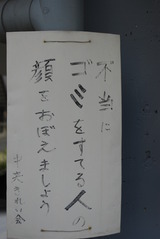 不当に
ゴミをすてる人の
顔をおぼえましょう
中央きれい会